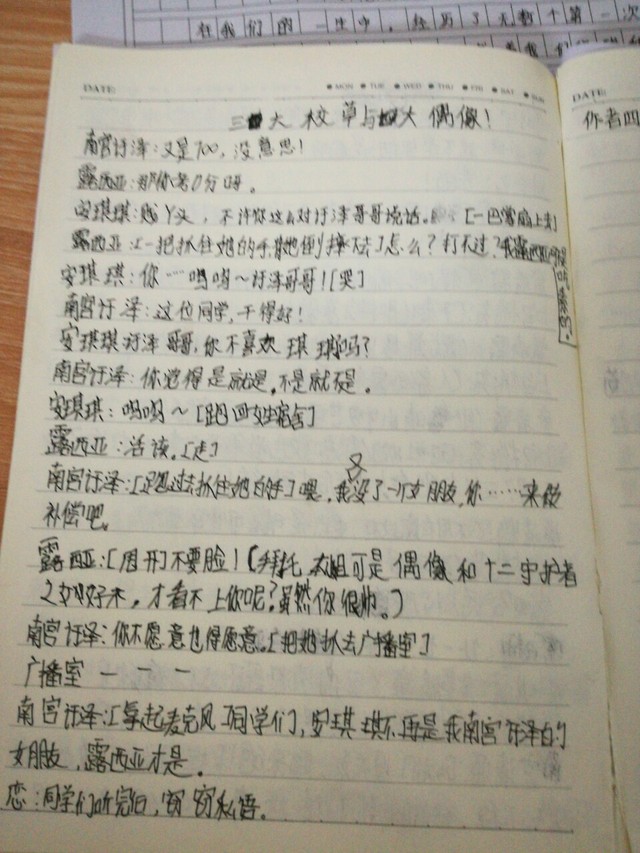 在我们的一生中，经历了无数个第一次
DATE:
MON TUE WED THU FRI SAT SUN
DATE:
作者四
三大校草与大偶像！
南宫汙泽：又是100，没意思！
露西亚：那你考0分呀。
安琪琪：贱丫头，不许你这么对汙泽哥哥说话。[一巴掌扇上去]
露西亚：[一把抓住她的手，
怎么？打不过？
安琪琪：你…呜呜～汙泽哥哥！[哭]
南宫汙泽：这位同学，干得好！
安琪琪：汙泽哥哥，你不喜欢琪琪吗？
南宫汙泽：你觉得是就是，不是就不是。
安琪琪：呜呜～[跑回女生宿舍]
露西亚：活该。[走]
南宫汙泽：[跑过去抓住她的手]喂，我又没了一个女朋友，你……来做
补偿吧。
露西亚：[甩开]不要脸！(拜托，本姐可是偶像和十二守护者
之女好不，才看不上你呢？虽然你很帅。)
南宫汙泽：你不愿意也得愿意。[把她抓去广播室]
广播室———
南宫汙泽：[拿起麦克风]同学们，安琪琪不再是我南宫汙泽的
女朋友，露西亚才是。
恋：同学们听完后，窃窃私语。